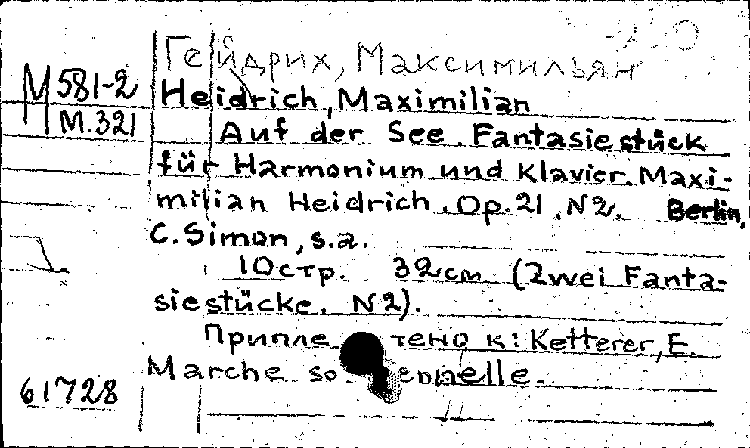 Гейдрих, Максимильян
М 581-2
М.321
Heidrich, Maximilian
Auf der See. Fantasiestück
für Harmonium und Klavier. Maxi-
milian Heidrich. Op.21. N2. Berlin,
C. Simon, s.a.
10стр. 32cm (Zwei Fanta-
siestücke. N2).
Припле тено к: Ketterer, E.
Marche so ennelle.
61728